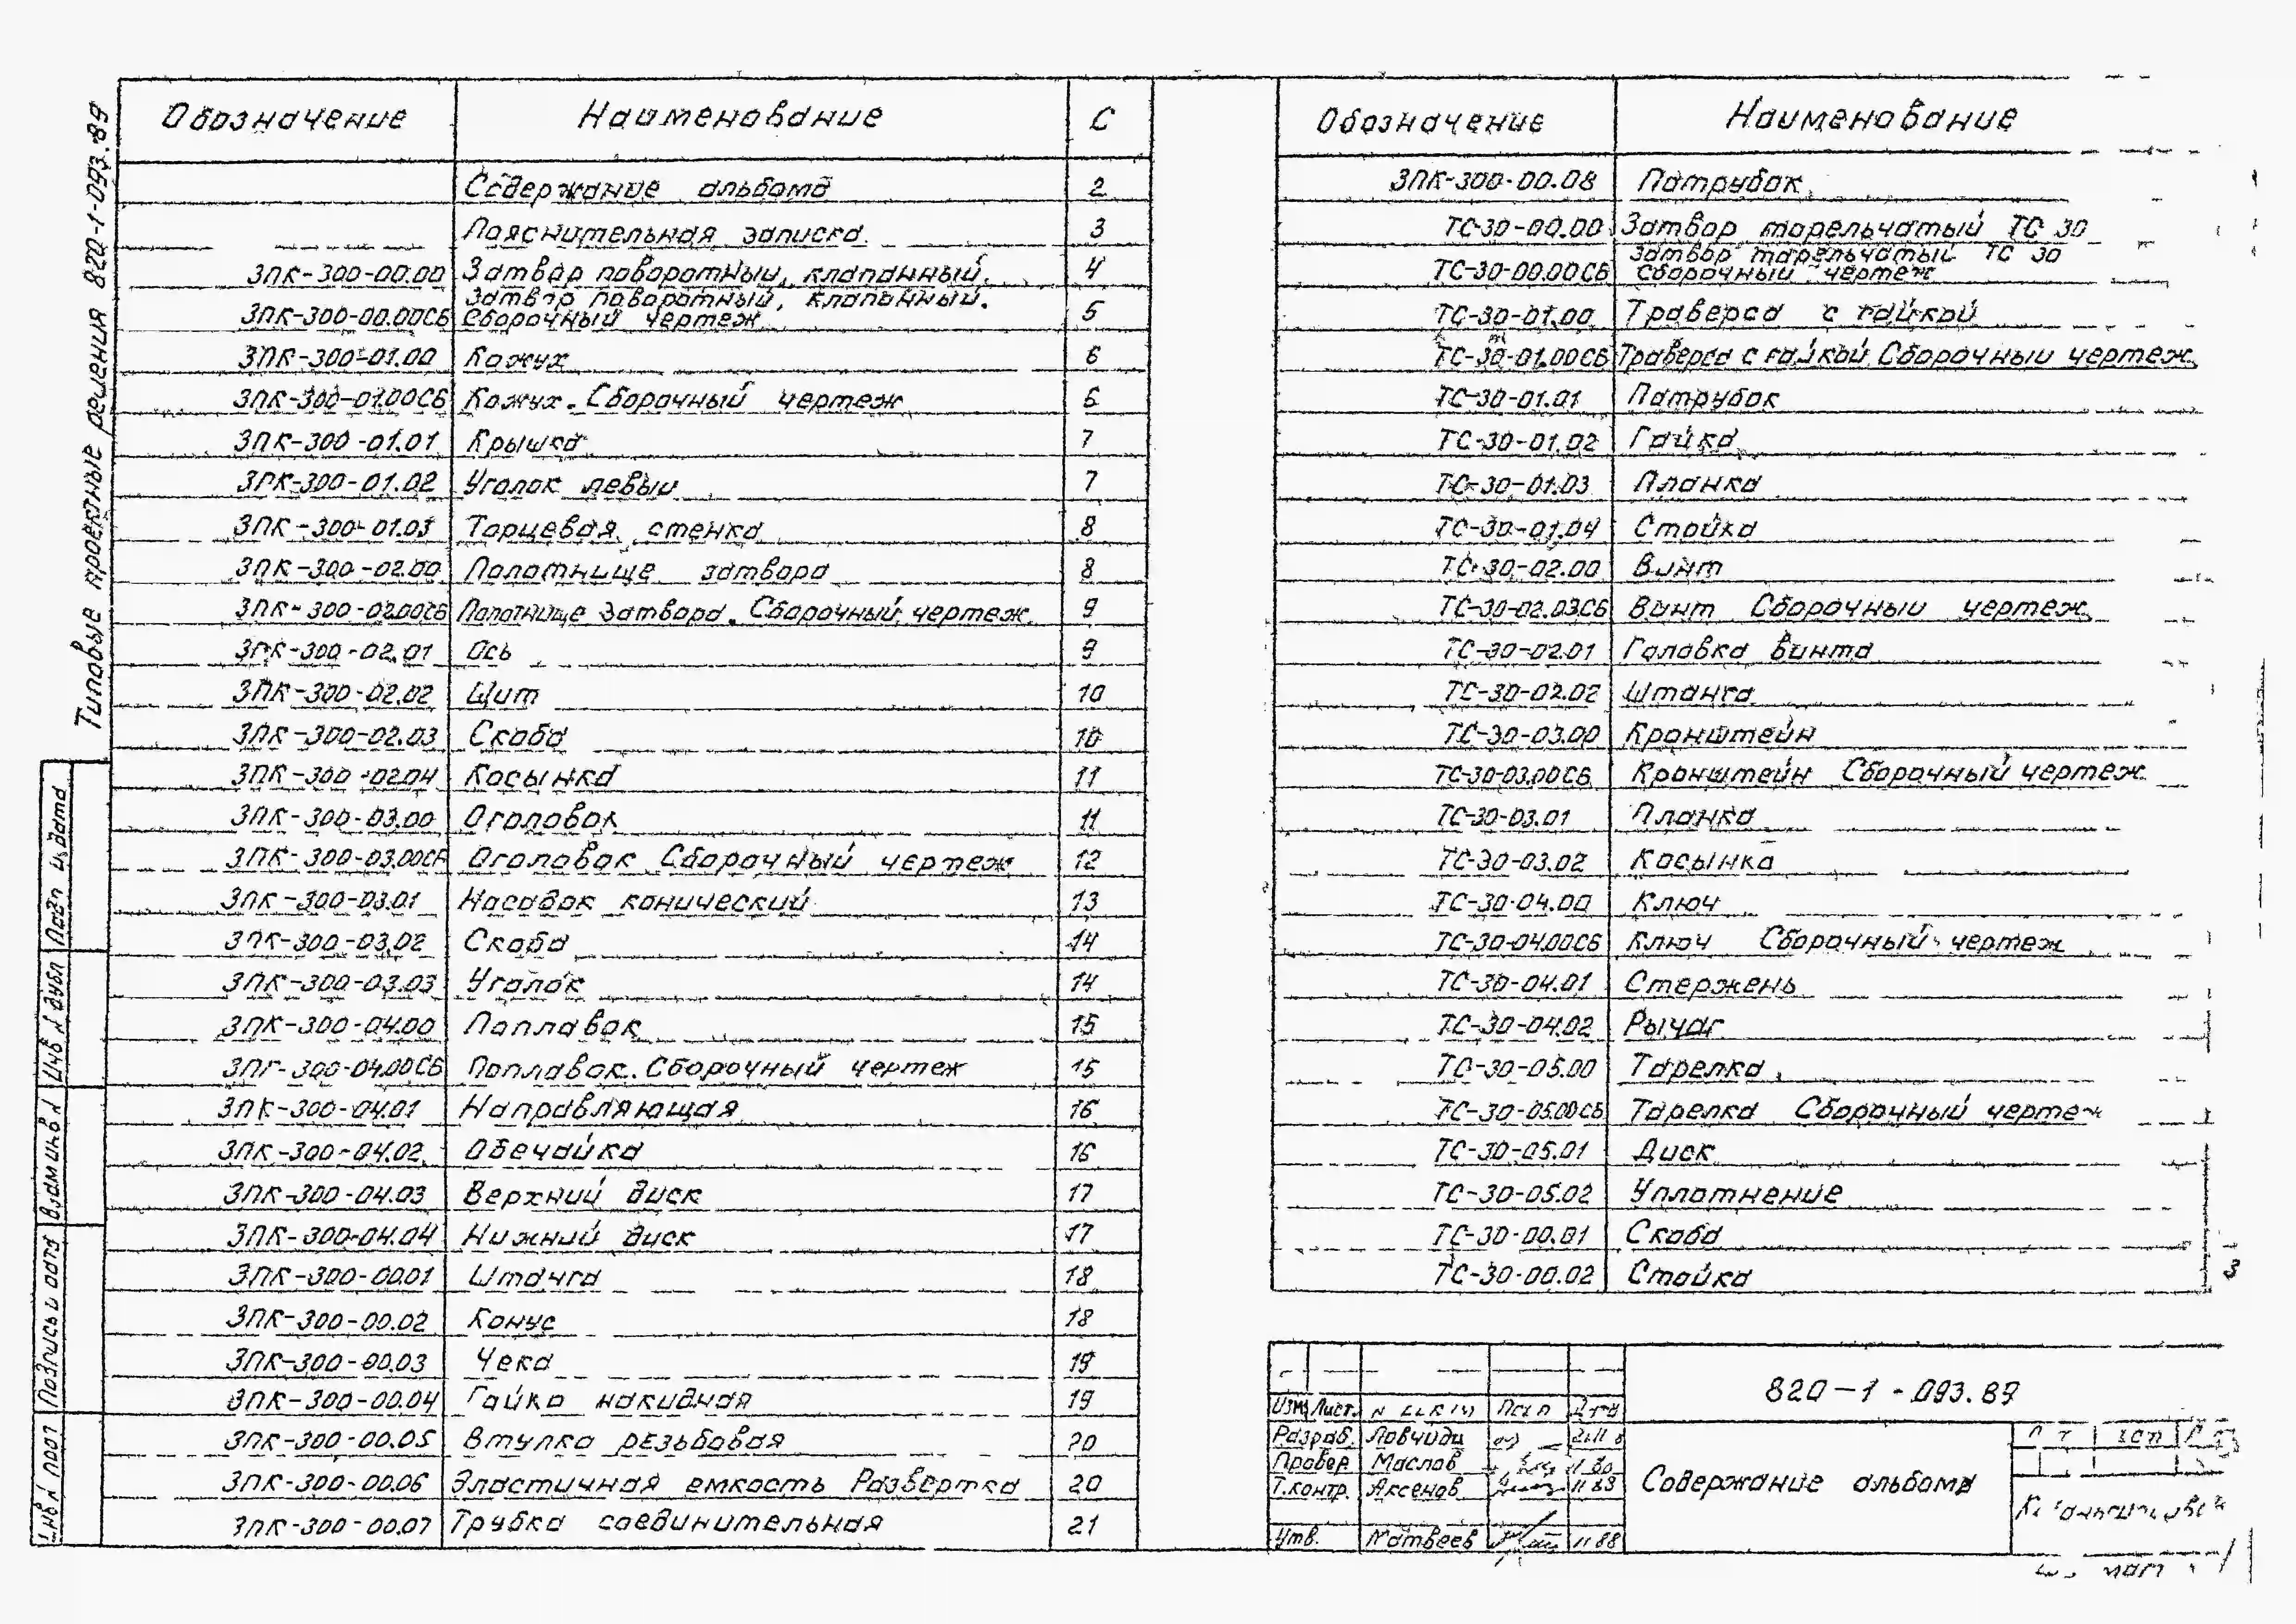 Типовые проектные решения 820-1-093.89
Обозначение Наименование С
Содержание альбома 2
Пояснительная записка 3
ЗПК-300-00.00 Затвор поворотный, клапанный. 4
Затвор поворотный, клапанный.
ЗПК-300-00.00СБ Сборочный чертеж 5
ЗПК-300-01.00 Кожух 6
ЗПК-300-01.00СБ Кожух. Сборочный чертеж 6
ЗПК-300-01.01 Крышка 7
ЗПК-300-01.02 Уголок левый 7
ЗПК-300-01.03 Торцевая стенка 8
ЗПК-300-02.00 Полотнище затвора 8
ЗПК-300-02.00СБ Полотнище затвора. Сборочный чертеж 9
ЗПК-300-02.01 Ось 9
ЗПК-300-02.02 Щит 10
ЗПК-300-02.03 Скоба 10
ЗПК-300-02.04 Косынка 11
ЗПК-300-03.00 Оголовок 11
ЗПК-300-03.00СБ Оголовок Сборочный чертеж 12
ЗПК-300-03.01 Насадок конический 13
ЗПК-300-03.02 Скоба 14
ЗПК-300-03.03 Уголок 14
ЗПК-300-04.00 Поплавок 15
ЗПК-300-04.00СБ Поплавок. Сборочный чертеж 15
ЗПК-300-04.01 Направляющая 16
ЗПК-300-04.02 Обечайка 16
ЗПК-300-04.03 Верхний диск 17
ЗПК-300-04.04 Нижний диск 17
ЗПК-300-00.01 Штанга 18
ЗПК-300-00.02 Конус 18
ЗПК-300-00.03 Чека 19
ЗПК-300-00.04 Гайка накидная 19
ЗПК-300-00.05 Втулка резьбовая 20
ЗПК-300-00.06 Эластичная емкость Развертка 20
ЗПК-300-00.07 Трубка соединительная 21
Обозначение Наименование
ЗПК-300-00.08 Патрубок
ТС-30-00.00 Затвор тарельчатый ТС 30
Затвор тарельчатый ТС 30
ТС-30-00.00СБ Сборочный чертеж
ТС-30-01.00 Траверса с гайкой
ТС-30-01.00СБ Траверса с гайкой. Сборочный чертеж
ТС-30-01.01 Патрубок
ТС-30-01.02 Гайка
ТС-30-01.03 Планка
ТС-30-01.04 Стойка
ТС-30-02.00 Винт
ТС-30-02.03СБ Винт Сборочный чертеж
ТС-30-02.01 Головка винта
ТС-30-02.02 Штанга
ТС-30-03.00 Кронштейн
ТС-30-03.00СБ Кронштейн Сборочный чертеж
ТС-30-03.01 Планка
ТС-30-03.02 Косынка
ТС-30-04.00 Ключ
ТС-30-04.00СБ Ключ Сборочный чертеж
ТС-30-04.01 Стержень
ТС-30-04.02 Рычаг
ТС-30-05.00 Тарелка
ТС-30-05.00СБ Тарелка Сборочный чертеж
ТС-30-05.01 Диск
ТС-30-05.02 Уплотнение
ТС-30-00.01 Скоба
ТС-30-00.02 Стойка
3
820-1-093.89
Изм Лист
Разраб.
Провер Маслов
Т.контр. Аксенов 11 89
Утв. Матвеев 11 88
Содержание альбома
Подп и дата
Инв № дубл
Взам инв №
Подпись и дата
Инв № подл